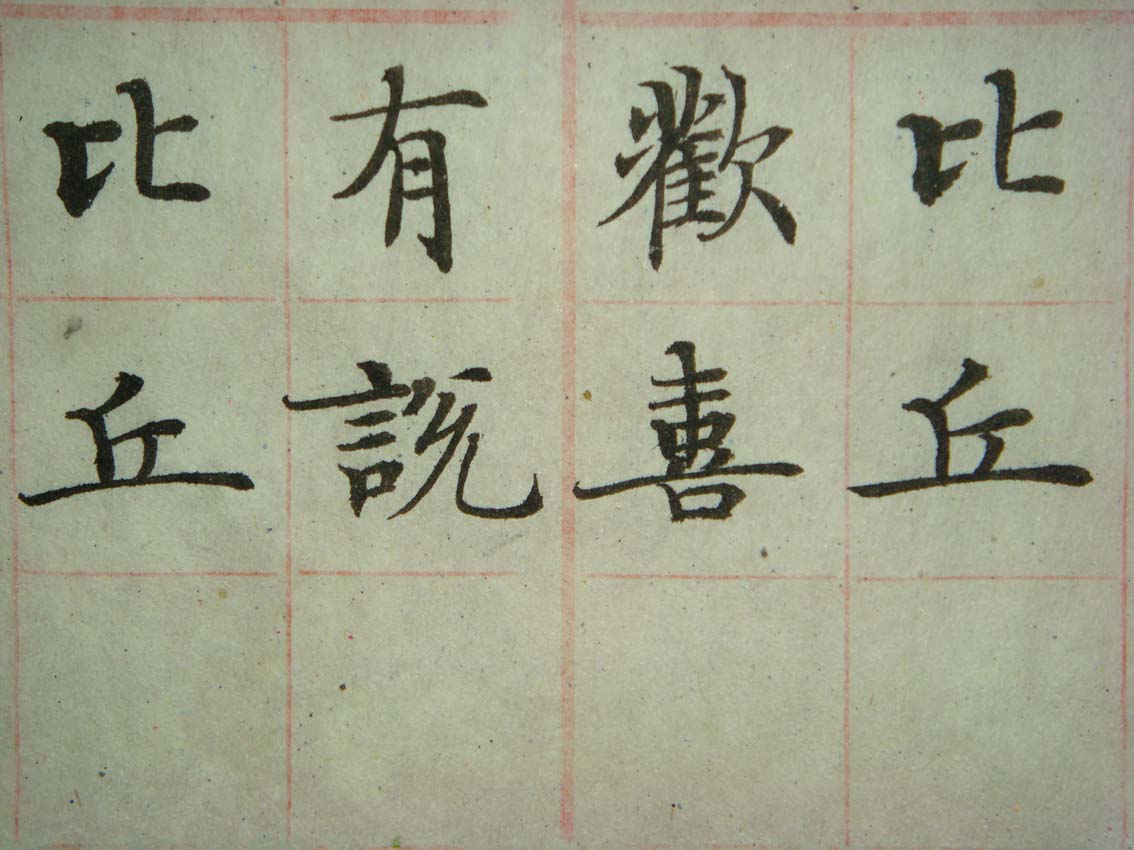 比丘
歡喜
有説
比丘